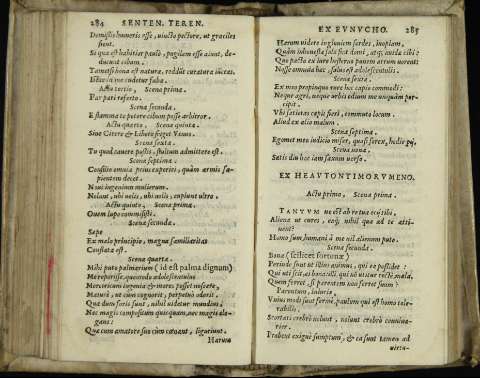 284 SENTEN. TEREN.
Demißis humeris esse, uincto pectore, ut graciles
sient.
Si qua est habitior paulò, pugilem esse aiunt, de-
ducunt cibum.
Tametsi bona est natura, reddūt curatura iūceas.
Actu tertio, Scena prima.
Par pari referto.
Scena secunda.
E flamma te petere cibum posse arbitror.
Actu quarto, Scena quinta.
Sine Cerere & Libero friget Venus.
Scena sexta.
Tu quod cauere possis, stultum admittere est.
Scena septima.
Consilio omnia prius experiri, quàm armis sa-
pientem decet.
Noui ingenium mulierum.
Nolunt, ubi uelis, ubi nolis, cupiunt ultro.
Actu quinto, Scena prima.
Quem lupo commisisti.
Scena secunda.
Sæpe
Ex malo principio, magna familiaritas
Conflata est.
Scena quarta.
Mihi puto palmarium (id est palma dignum)
Me reperisse, quomodo adolescentulus
Meretricum ingenia & mores posset noscere,
Maturè, ut cum cognorit, perpetuò oderit.
Quæ dum foris sunt, nihil uidetur mundius,
Nec magis compositum quicquam, nec magis ele-
gans:
Quæ cum amatore suo cùm cœnant, liguriunt.
Harum
EX EVNVCHO. 285
Harum uidere ingluuiem sordes, inopiam,
Quàm inhonestæ solæ sint domi, atq; auidæ cibi:
Quo pacto ex iure hesterno panem atrum uorent:
Nosse omnia hæc, salus est adolescentulis.
Scena sexta.
Ex meo propinquo rure hoc capio commodi:
Neque agri, neque urbis odium me unquàm per-
cipit.
Vbi satietas cœpit fieri, commuto locum.
Aliud ex alio malum.
Scena septima.
Egomet meo indicio miser, quasi sorex, hodie pij.
Scena nona.
Satis diu hoc iam saxum uerso.
EX HEAVTONTIMORVMENO.
Actu primo, Scena prima.
TANTVM ne est ab re tua ocij tibi,
Aliena ut cures, eaq; nihil quæ ad te atti-
nent?
Homo sum, humani à me nil alienum puto.
Scena secunda.
Bona (scilicet fortunæ)
Perinde sunt ut illius animus, qui ea possidet:
Qui uti scit, ei bona: illi, qui nō utitur rectè, mala.
Quem ferret, si parentem non ferret suum?
Parentum, iniuriæ
Vnius modi sunt fermè, paulum qui est homo tole-
rabilis.
Scortari crebrò nolunt, nolunt crebrò conuiua-
rier.
Præbent exiguè sumptum, & ea sunt tamen ad
uirtu-